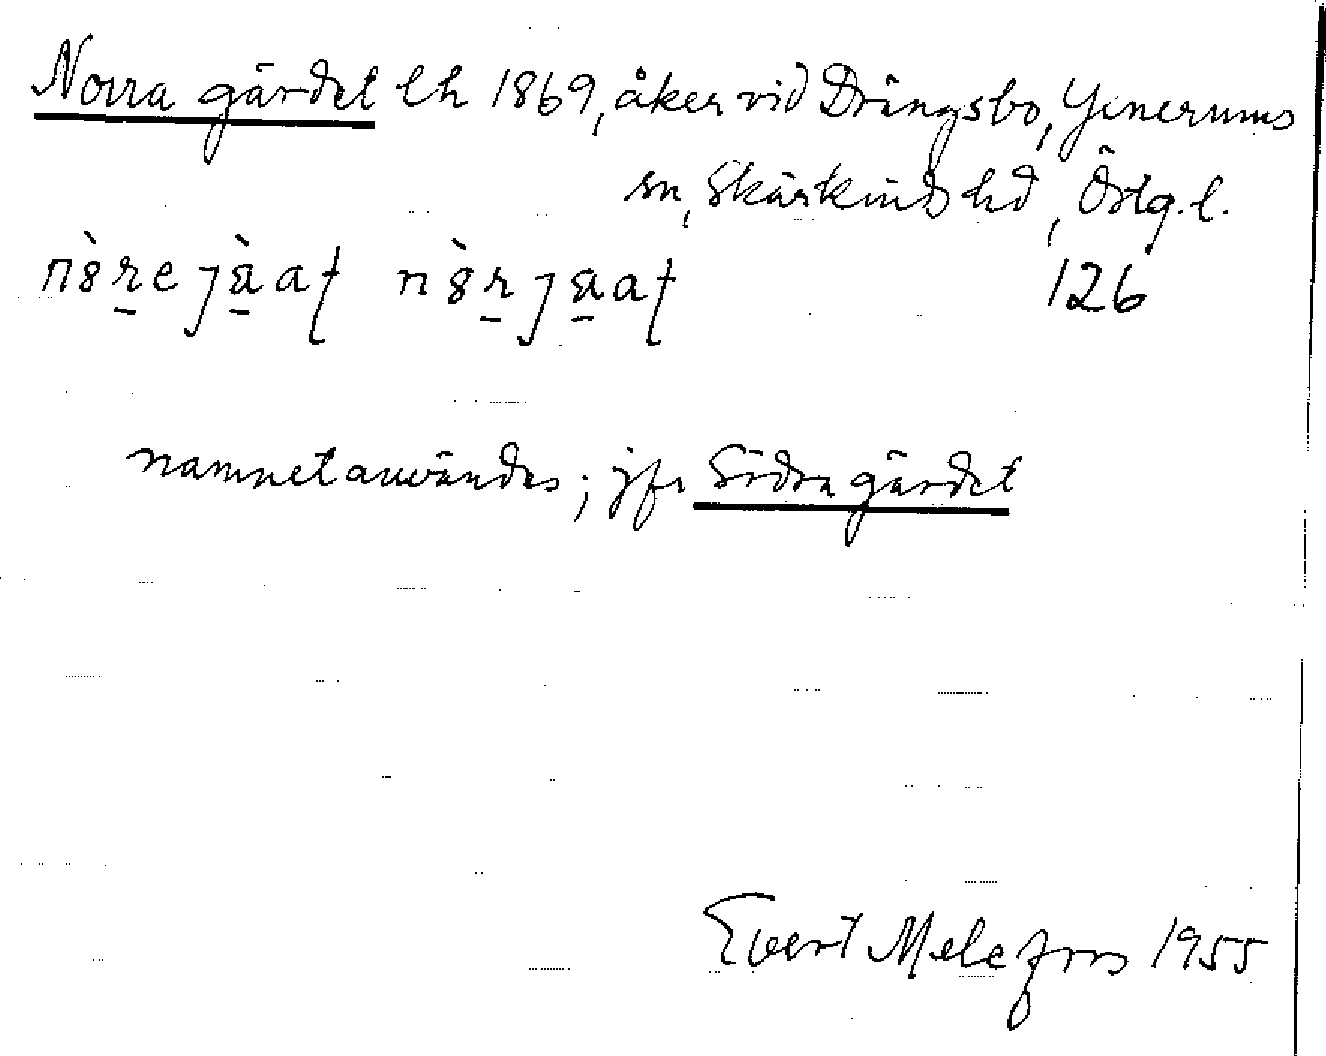 Norra gärdet lh 1869, åker vid Drängsbo, Yxnerums
sn, Skärkinds hd, Östg.l.
126
namnet användes; jfr Södra gärdet
Evert Melefors 1955